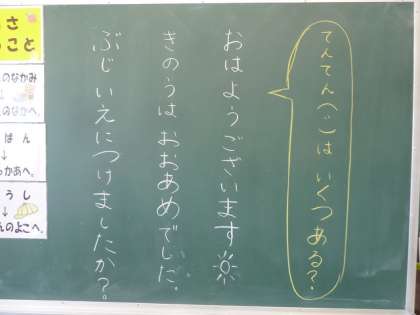 てんてん(〃)は いくつある?
おはようございます
きのうは おおあめでした。
ぶじ いえにつけましたか?。
さ
こと
のなかみ
↓
のなかへ。
ばん
↓
っかあへ。
うし
↓
んのよこへ。